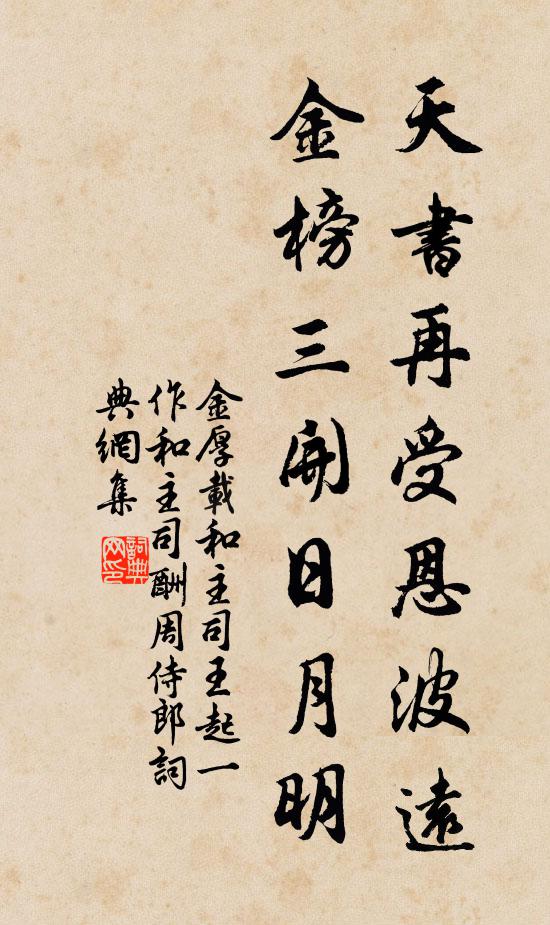 天書再受恩波遠
金榜三開日月明
金厚載和主司王起一
作和主司酬周侍郎詞
典網集
詞典
网印